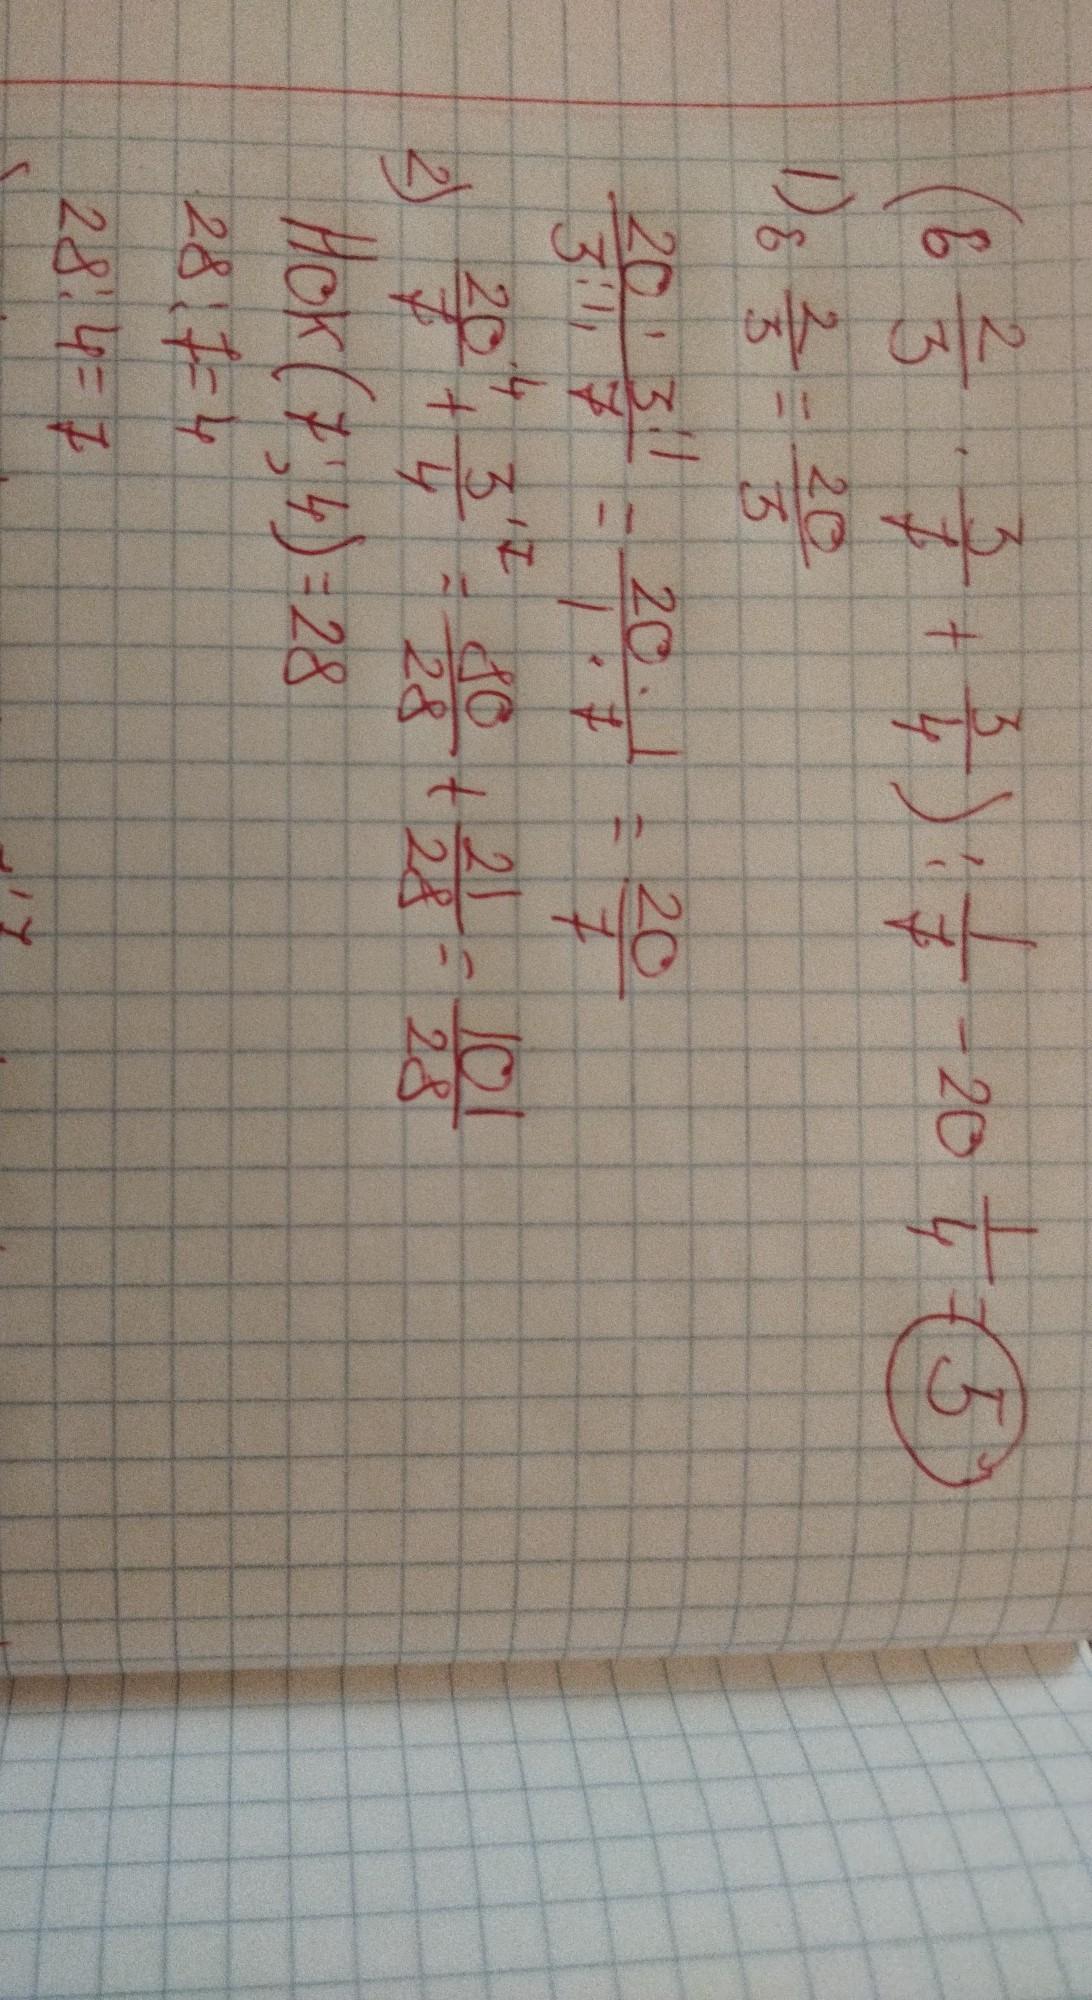 (6 2/3 · 3/7 + 3/4) : 1/7 - 20 1/4 = 5
1) 6 2/3 = 20/3
20 · 3:1 / 3:1 · 7 = 20 · 1 / 1 · 7 = 20/7
2) 20/7 ·4 + 3/4 ·7 = 80/28 + 21/28 = 101/28
НОК (7; 4) = 28
28 : 7 = 4
28 : 4 = 7